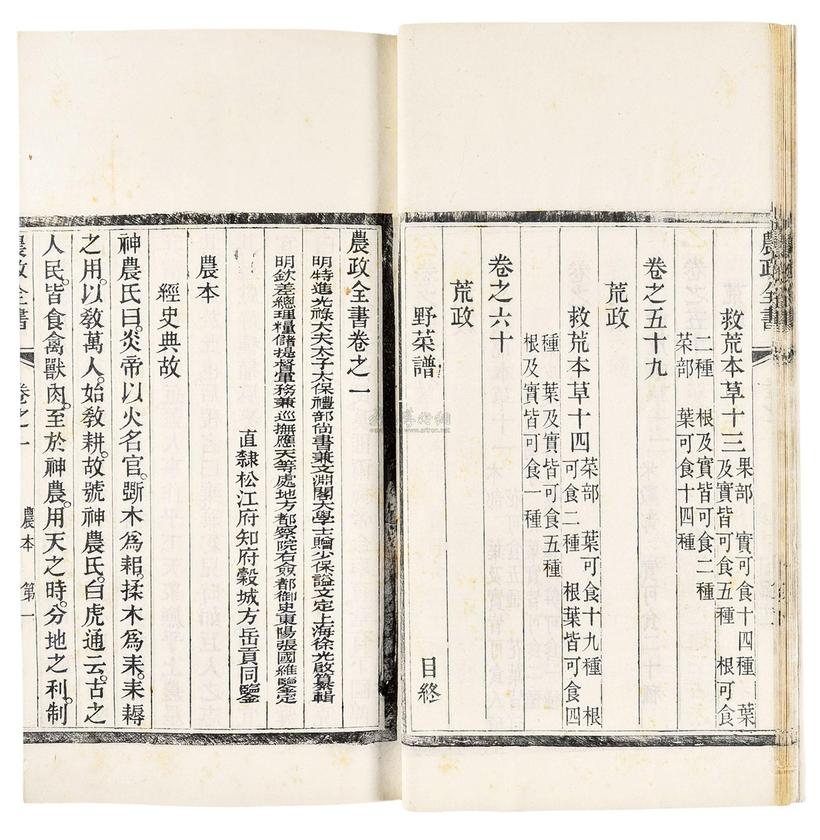 農政全書
救荒本草十三 果部 實可食十四種 葉
及實皆可食五種 根可食
二種 根及實皆可食二種
菜部 葉可食十四種
卷之五十九
荒政
救荒本草十四 菜部 葉可食十九種 根
可食二種 根葉皆可食四
種 葉及實皆可食五種
根及實皆可食一種
卷之六十
荒政
野菜譜 目終
農政全書卷之一
明特進光祿大夫太子太保禮部尚書兼文淵閣大學士贈少保謚文定上海徐光啟纂輯
明欽差總理糧儲提督軍務兼巡撫應天等處地方都察院右僉都御史東陽張國維鑒定
直隸松江府知府穀城方岳貢同鑒
農本
經史典故
神農氏曰炎帝以火名官。斲木為耜。揉木為耒。耒耨
之用。以敎萬人。始敎耕。故號神農氏。白虎通云。古之
人民。皆食禽獸肉。至於神農。用天之時。分地之利。制
農政全書 卷之一 農本 第一